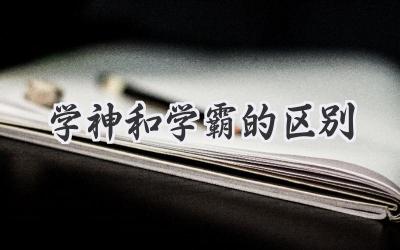 学神和学霸的区别